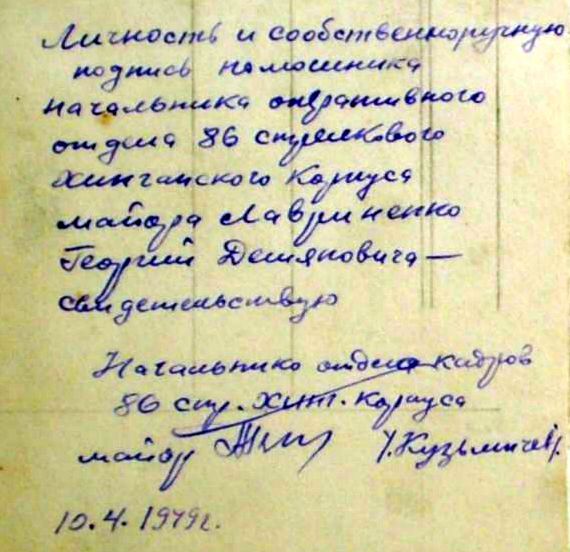 Личность и сообственноручную
подпись помошника
начальника оперативного
отдела 86 стрелкового
Хинганского Корпуса
майора Лавриненко
Георгий Демяновича —
свидетельствую
Начальник отдела кадров
86 стр. Хин. Корпуса
майор /Кузьмичев/.
10.4.1949г.